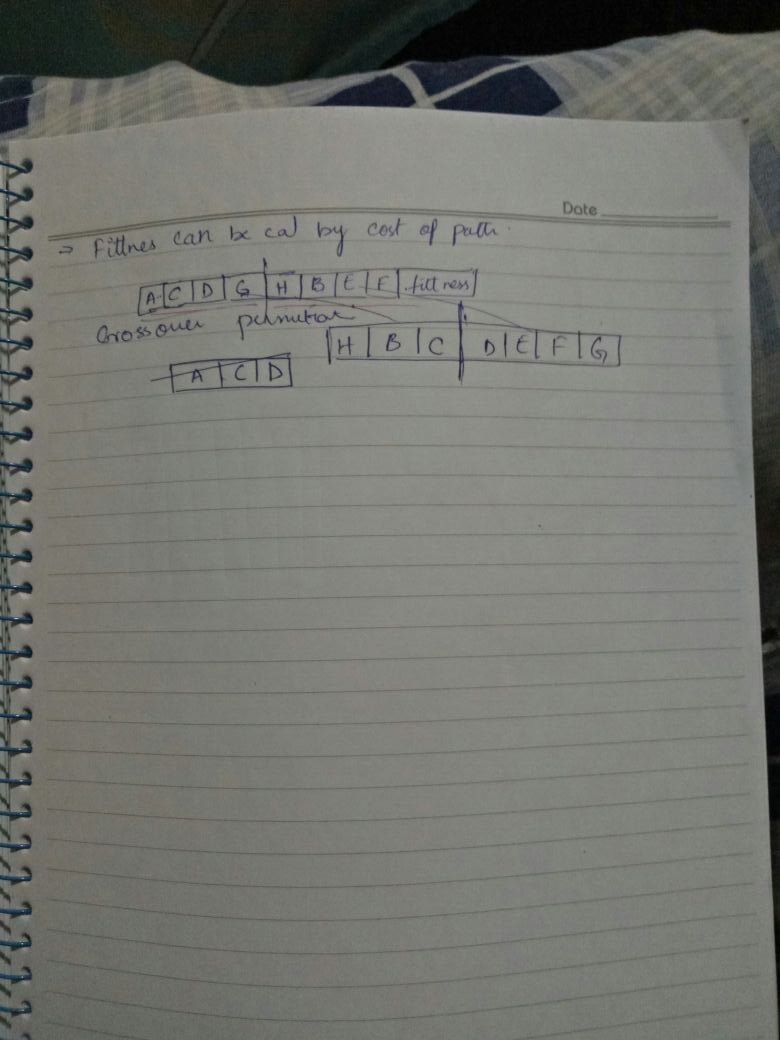 Date
⇒ Fittnes can be cal by cost of path.
A C D G H B E F fittness
Crossover permutation
H B C D E F G
A C D